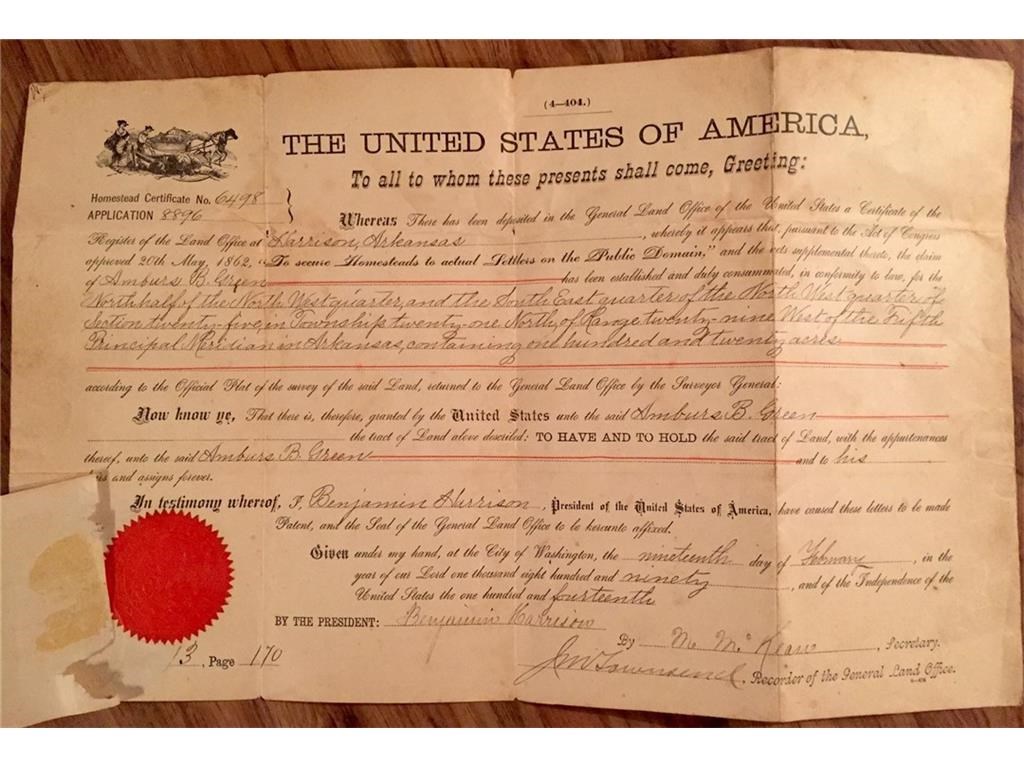 (4—404.)
THE UNITED STATES OF AMERICA,
To all to whom these presents shall come, Greeting:
Homestead Certificate No. 6498
APPLICATION 8896
Whereas There has been deposited in the General Land Office of the United States a Certificate of the
Register of the Land Office at Harrison, Arkansas, whereby it appears that, pursuant to the Act of Congress
approved 20th May, 1862, "To secure Homesteads to actual Settlers on the Public Domain," and the acts supplemental thereto, the claim
of Amburs B. Green has been established and duly consummated, in conformity to law, for the
North half of the North West quarter, and the South East quarter of the North West quarter of
Section twenty-five, in Township twenty-one North, of Range twenty-nine West of the Fifth
Principal Meridian in Arkansas, containing one hundred and twenty acres
according to the Official Plat of the survey of the said Land, returned to the General Land Office by the Surveyor General:
Now know ye, That there is, therefore, granted by the United States unto the said Amburs B. Green
the tract of Land above described: TO HAVE AND TO HOLD the said tract of Land, with the appurtenances
thereof, unto the said Amburs B. Green and to his
heirs and assigns forever.
In testimony whereof, I, Benjamin Harrison, President of the United States of America, have caused these letters to be made
Patent, and the Seal of the General Land Office to be hereunto affixed.
Given under my hand, at the City of Washington, the nineteenth day of February, in the
year of our Lord one thousand eight hundred and ninety, and of the Independence of the
United States the one hundred and fourteenth
BY THE PRESIDENT: Benjamin Harrison
By M. McKean, Secretary.
J. M. Townsend, Recorder of the General Land Office.
13, Page 170